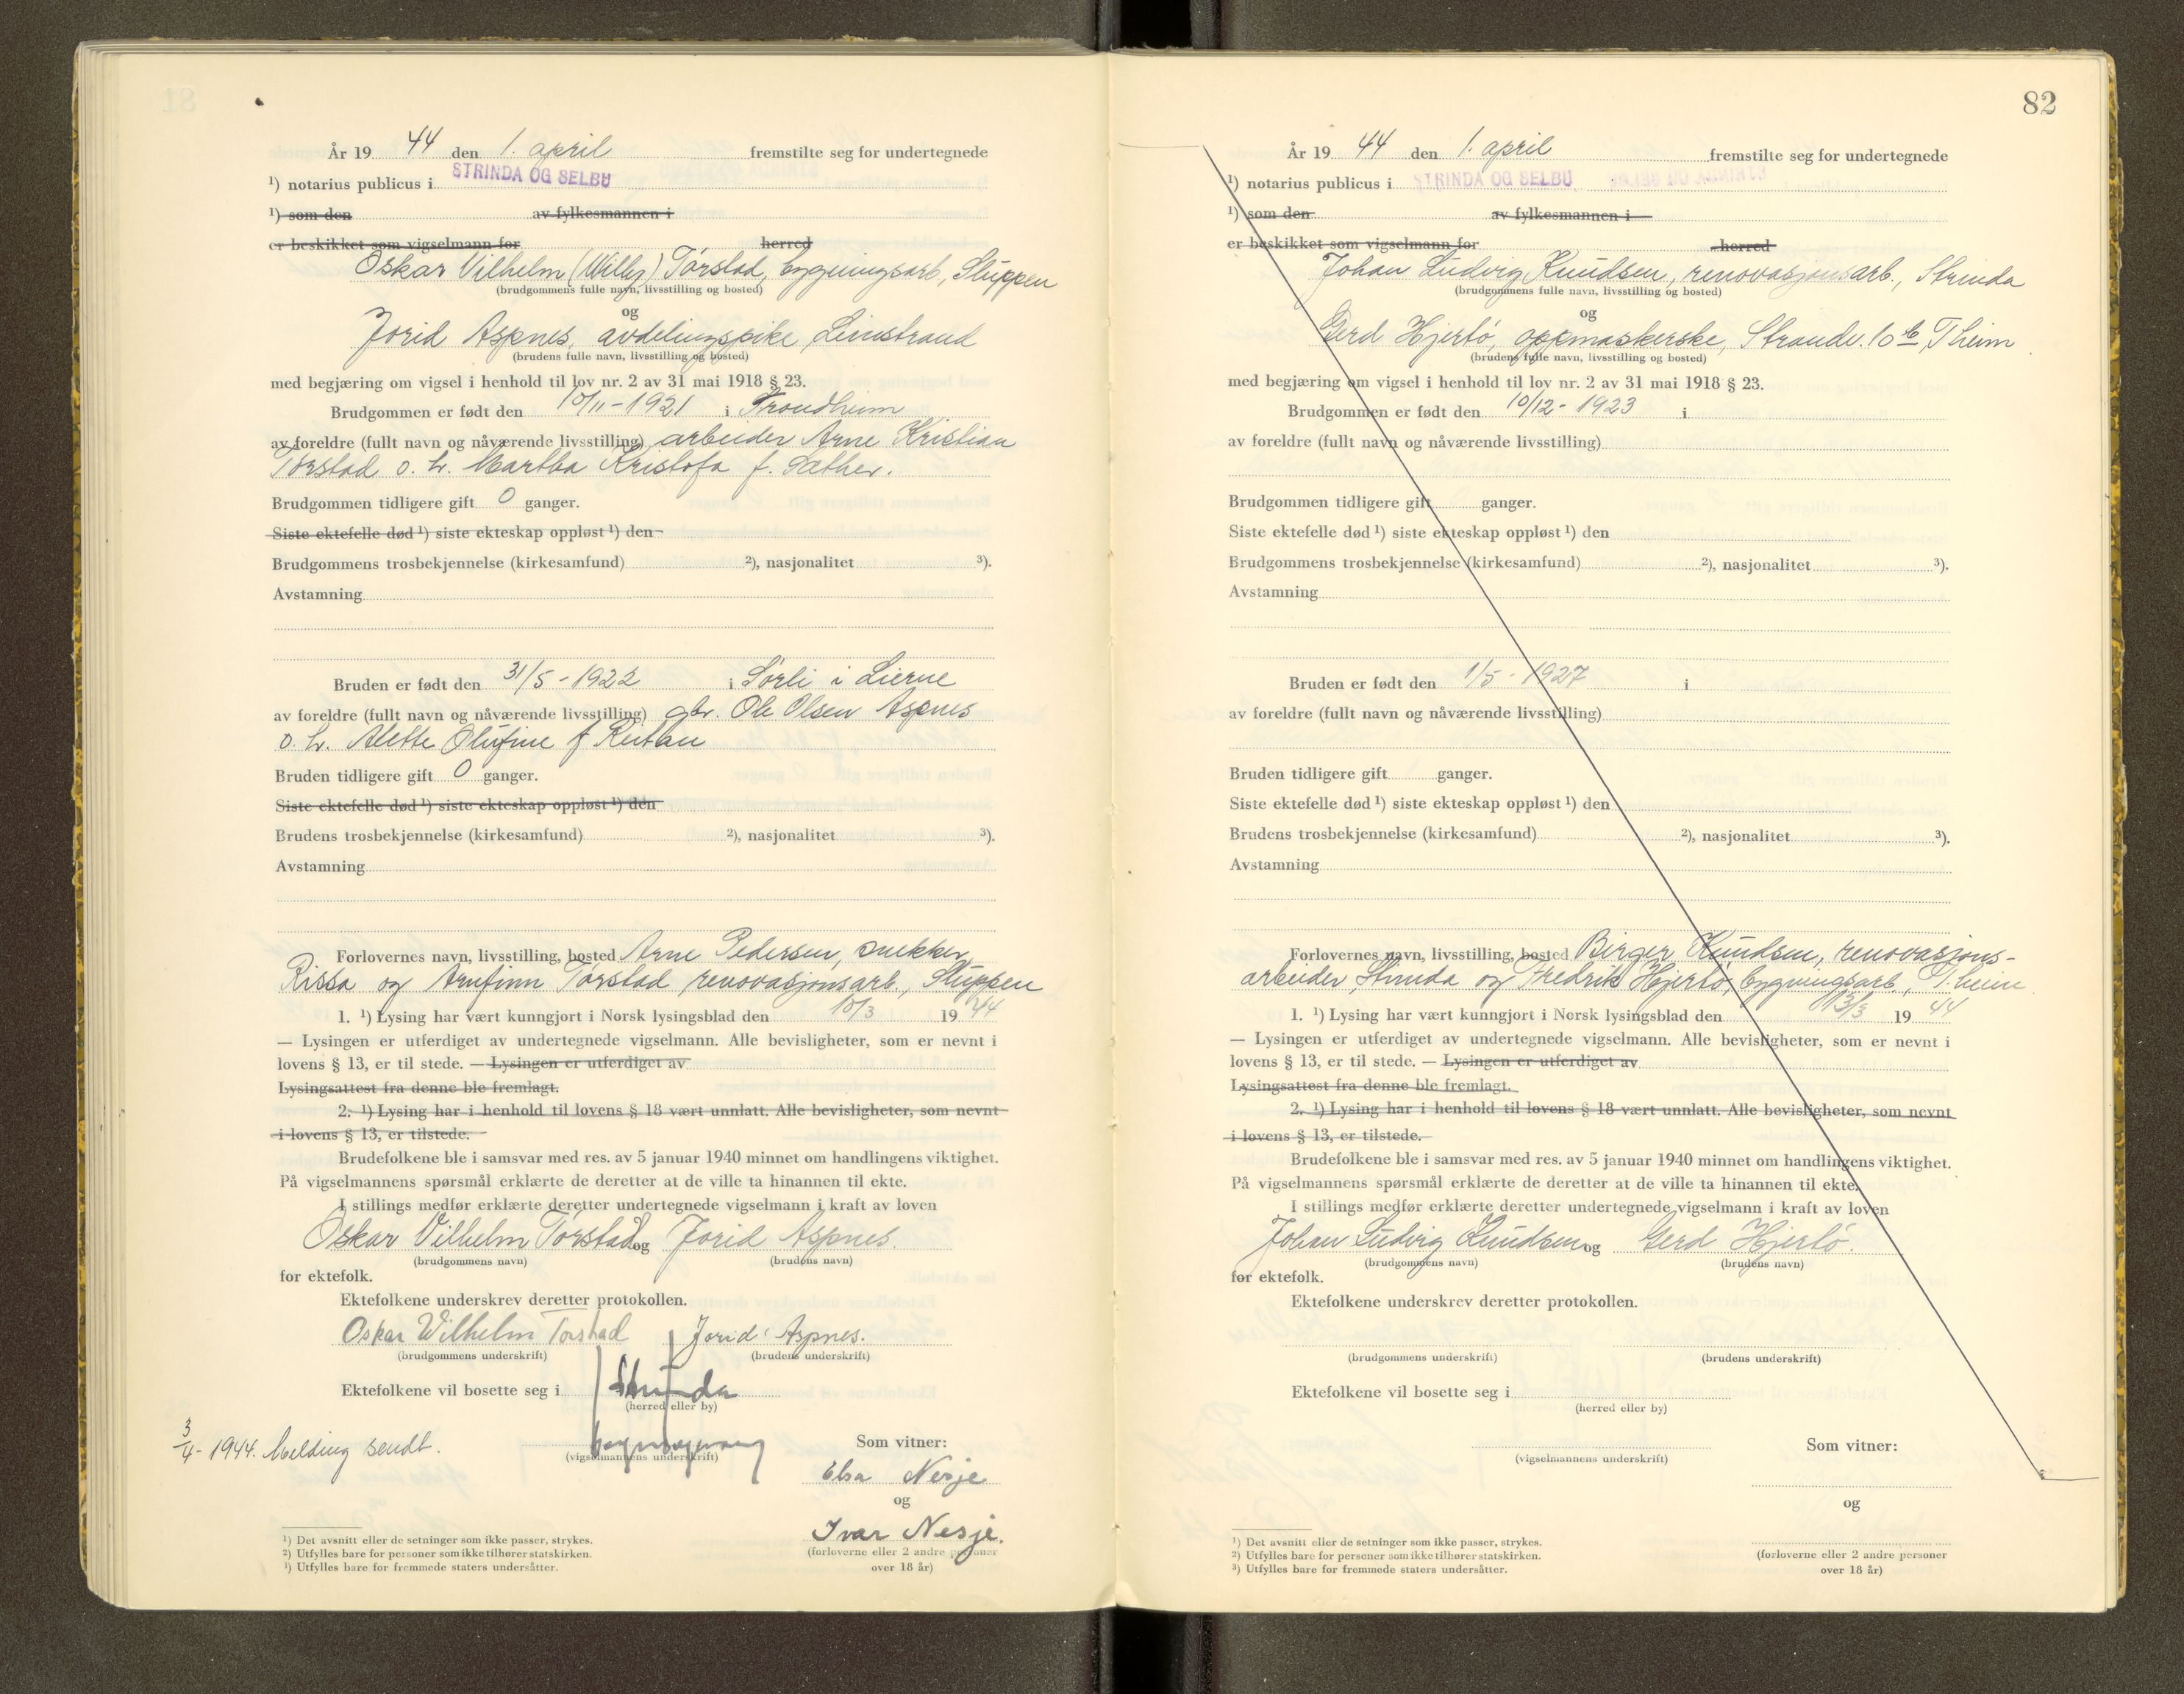 År 19 44 den 1. april fremstilte seg for undertegnede
¹) notarius publicus i STRINDA OG SELBU
¹) som den av fylkesmannen i
er beskikket som vigselmann for herred
Oskar Vilhelm (Willy) Torstad, bygningsarb., Sluppen
(brudgommens fulle navn, livsstilling og bosted)
og
Jorid Aspnes, avdelingspike, Leinstrand
(brudens fulle navn, livsstilling og bosted)
med begjæring om vigsel i henhold til lov nr. 2 av 31 mai 1918 § 23.
Brudgommen er født den 10/11-1921 i Trondheim
av foreldre (fullt navn og nåværende livsstilling) arbeider Arne Kristian
Torstad o. h. Martha Kristofa f. Sæther.
Brudgommen tidligere gift 0 ganger.
Siste ektefelle død ¹) siste ekteskap oppløst ¹) den
Brudgommens trosbekjennelse (kirkesamfund) ²), nasjonalitet ³).
Avstamning
Bruden er født den 31/5-1922 i Sørli i Lierne
av foreldre (fullt navn og nåværende livsstilling) gbr. Ole Olsen Aspnes
o. h. Alette Olufine f
Bruden tidligere gift 0 ganger.
Siste ektefelle død ¹) siste ekteskap oppløst ¹) den
Brudens trosbekjennelse (kirkesamfund) ²), nasjonalitet ³).
Avstamning
Forlovernes navn, livsstilling, bosted Arne Pedersen, snekker,
Rissa og Arnfinn Torstad renovasjonsarb., Sluppen
1. ¹) Lysing har vært kunngjort i Norsk lysingsblad den 10/3 19 44
— Lysingen er utferdiget av undertegnede vigselmann. Alle bevisligheter, som er nevnt i
lovens § 13, er til stede. — Lysingen er utferdiget av
Lysingsattest fra denne ble fremlagt.
2. ¹) Lysing har i henhold til lovens § 18 vært unnlatt. Alle bevisligheter, som nevnt
i lovens § 13, er tilstede.
Brudefolkene ble i samsvar med res. av 5 januar 1940 minnet om handlingens viktighet.
På vigselmannens spørsmål erklærte de deretter at de ville ta hinannen til ekte.
I stillings medfør erklærte deretter undertegnede vigselmann i kraft av loven
Oskar Vilhelm Torstad og Jorid Aspnes.
(brudgommens navn) (brudens navn)
for ektefolk.
Ektefolkene underskrev deretter protokollen.
Oskar Wilhelm Torstad Jorid Aspnes.
(brudgommens underskrift) (brudens underskrift)
Ektefolkene vil bosette seg i Strinda
(herred eller by)
3/4-1944. Melding sendt.
(vigselmannens underskrift)
Som vitner:
Elsa Nesje
og
Ivar Nesje.
(forloverne eller 2 andre personer
over 18 år)
¹) Det avsnitt eller de setninger som ikke passer, strykes.
²) Utfylles bare for personer som ikke tilhører statskirken.
³) Utfylles bare for fremmede staters undersåtter.
82
År 19 44 den 1. april fremstilte seg for undertegnede
¹) notarius publicus i STRINDA OG SELBU
¹) som den av fylkesmannen i
er beskikket som vigselmann for herred
Johan Ludvig Knudsen, renovasjonsarb., Strinda
(brudgommens fulle navn, livsstilling og bosted)
og
Gerd Hjertø, oppmaskerske, Strandv. 10 b T.heim
(brudens fulle navn, livsstilling og bosted)
med begjæring om vigsel i henhold til lov nr. 2 av 31 mai 1918 § 23.
Brudgommen er født den 10/12-1923 i
av foreldre (fullt navn og nåværende livsstilling)
Brudgommen tidligere gift ganger.
Siste ektefelle død ¹) siste ekteskap oppløst ¹) den
Brudgommens trosbekjennelse (kirkesamfund) ²), nasjonalitet ³).
Avstamning
Bruden er født den 1/5-1927 i
av foreldre (fullt navn og nåværende livsstilling)
Bruden tidligere gift ganger.
Siste ektefelle død ¹) siste ekteskap oppløst ¹) den
Brudens trosbekjennelse (kirkesamfund) ²), nasjonalitet ³).
Avstamning
Forlovernes navn, livsstilling, bosted Birger Knudsen, renovasjons-
arbeider, Strinda og Fredrik Hjertø, bygningsarb., T.heim
1. ¹) Lysing har vært kunngjort i Norsk lysingsblad den 13/3 19 44
— Lysingen er utferdiget av undertegnede vigselmann. Alle bevisligheter, som er nevnt i
lovens § 13, er til stede. — Lysingen er utferdiget av
Lysingsattest fra denne ble fremlagt.
2. ¹) Lysing har i henhold til lovens § 18 vært unnlatt. Alle bevisligheter, som nevnt
i lovens § 13, er tilstede.
Brudefolkene ble i samsvar med res. av 5 januar 1940 minnet om handlingens viktighet.
På vigselmannens spørsmål erklærte de deretter at de ville ta hinannen til ekte.
I stillings medfør erklærte deretter undertegnede vigselmann i kraft av loven
Johan Ludvig Knudsen og Gerd Hjertø.
(brudgommens navn) (brudens navn)
for ektefolk.
Ektefolkene underskrev deretter protokollen.
(brudgommens underskrift) (brudens underskrift)
Ektefolkene vil bosette seg i
(herred eller by)
(vigselmannens underskrift)
Som vitner:
og
(forloverne eller 2 andre personer
over 18 år)
¹) Det avsnitt eller de setninger som ikke passer, strykes.
²) Utfylles bare for personer som ikke tilhører statskirken.
³) Utfylles bare for fremmede staters undersåtter.